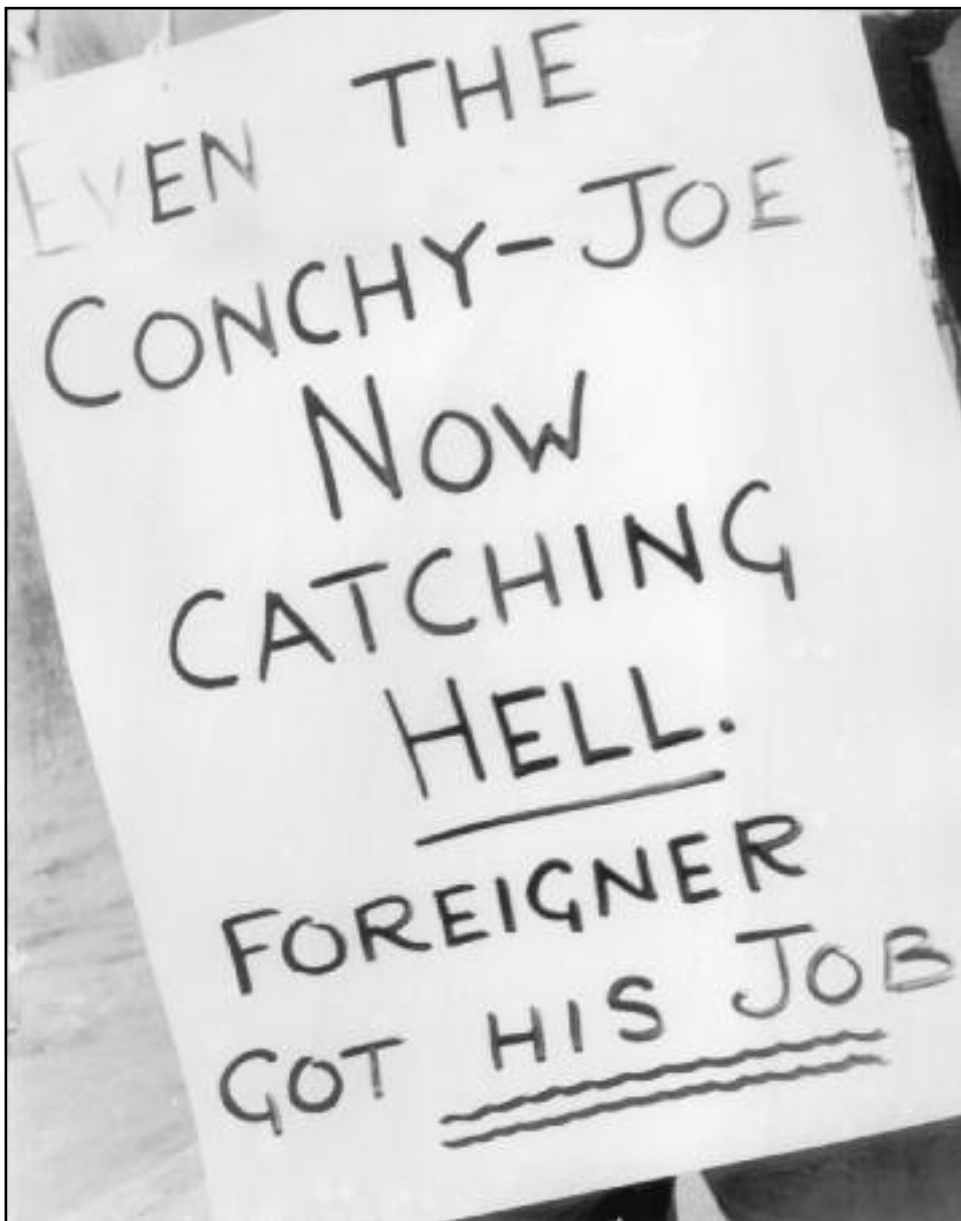 EVEN THE
CONCHY-JOE
NOW
CATCHING
HELL.
FOREIGNER
GOT HIS JOB